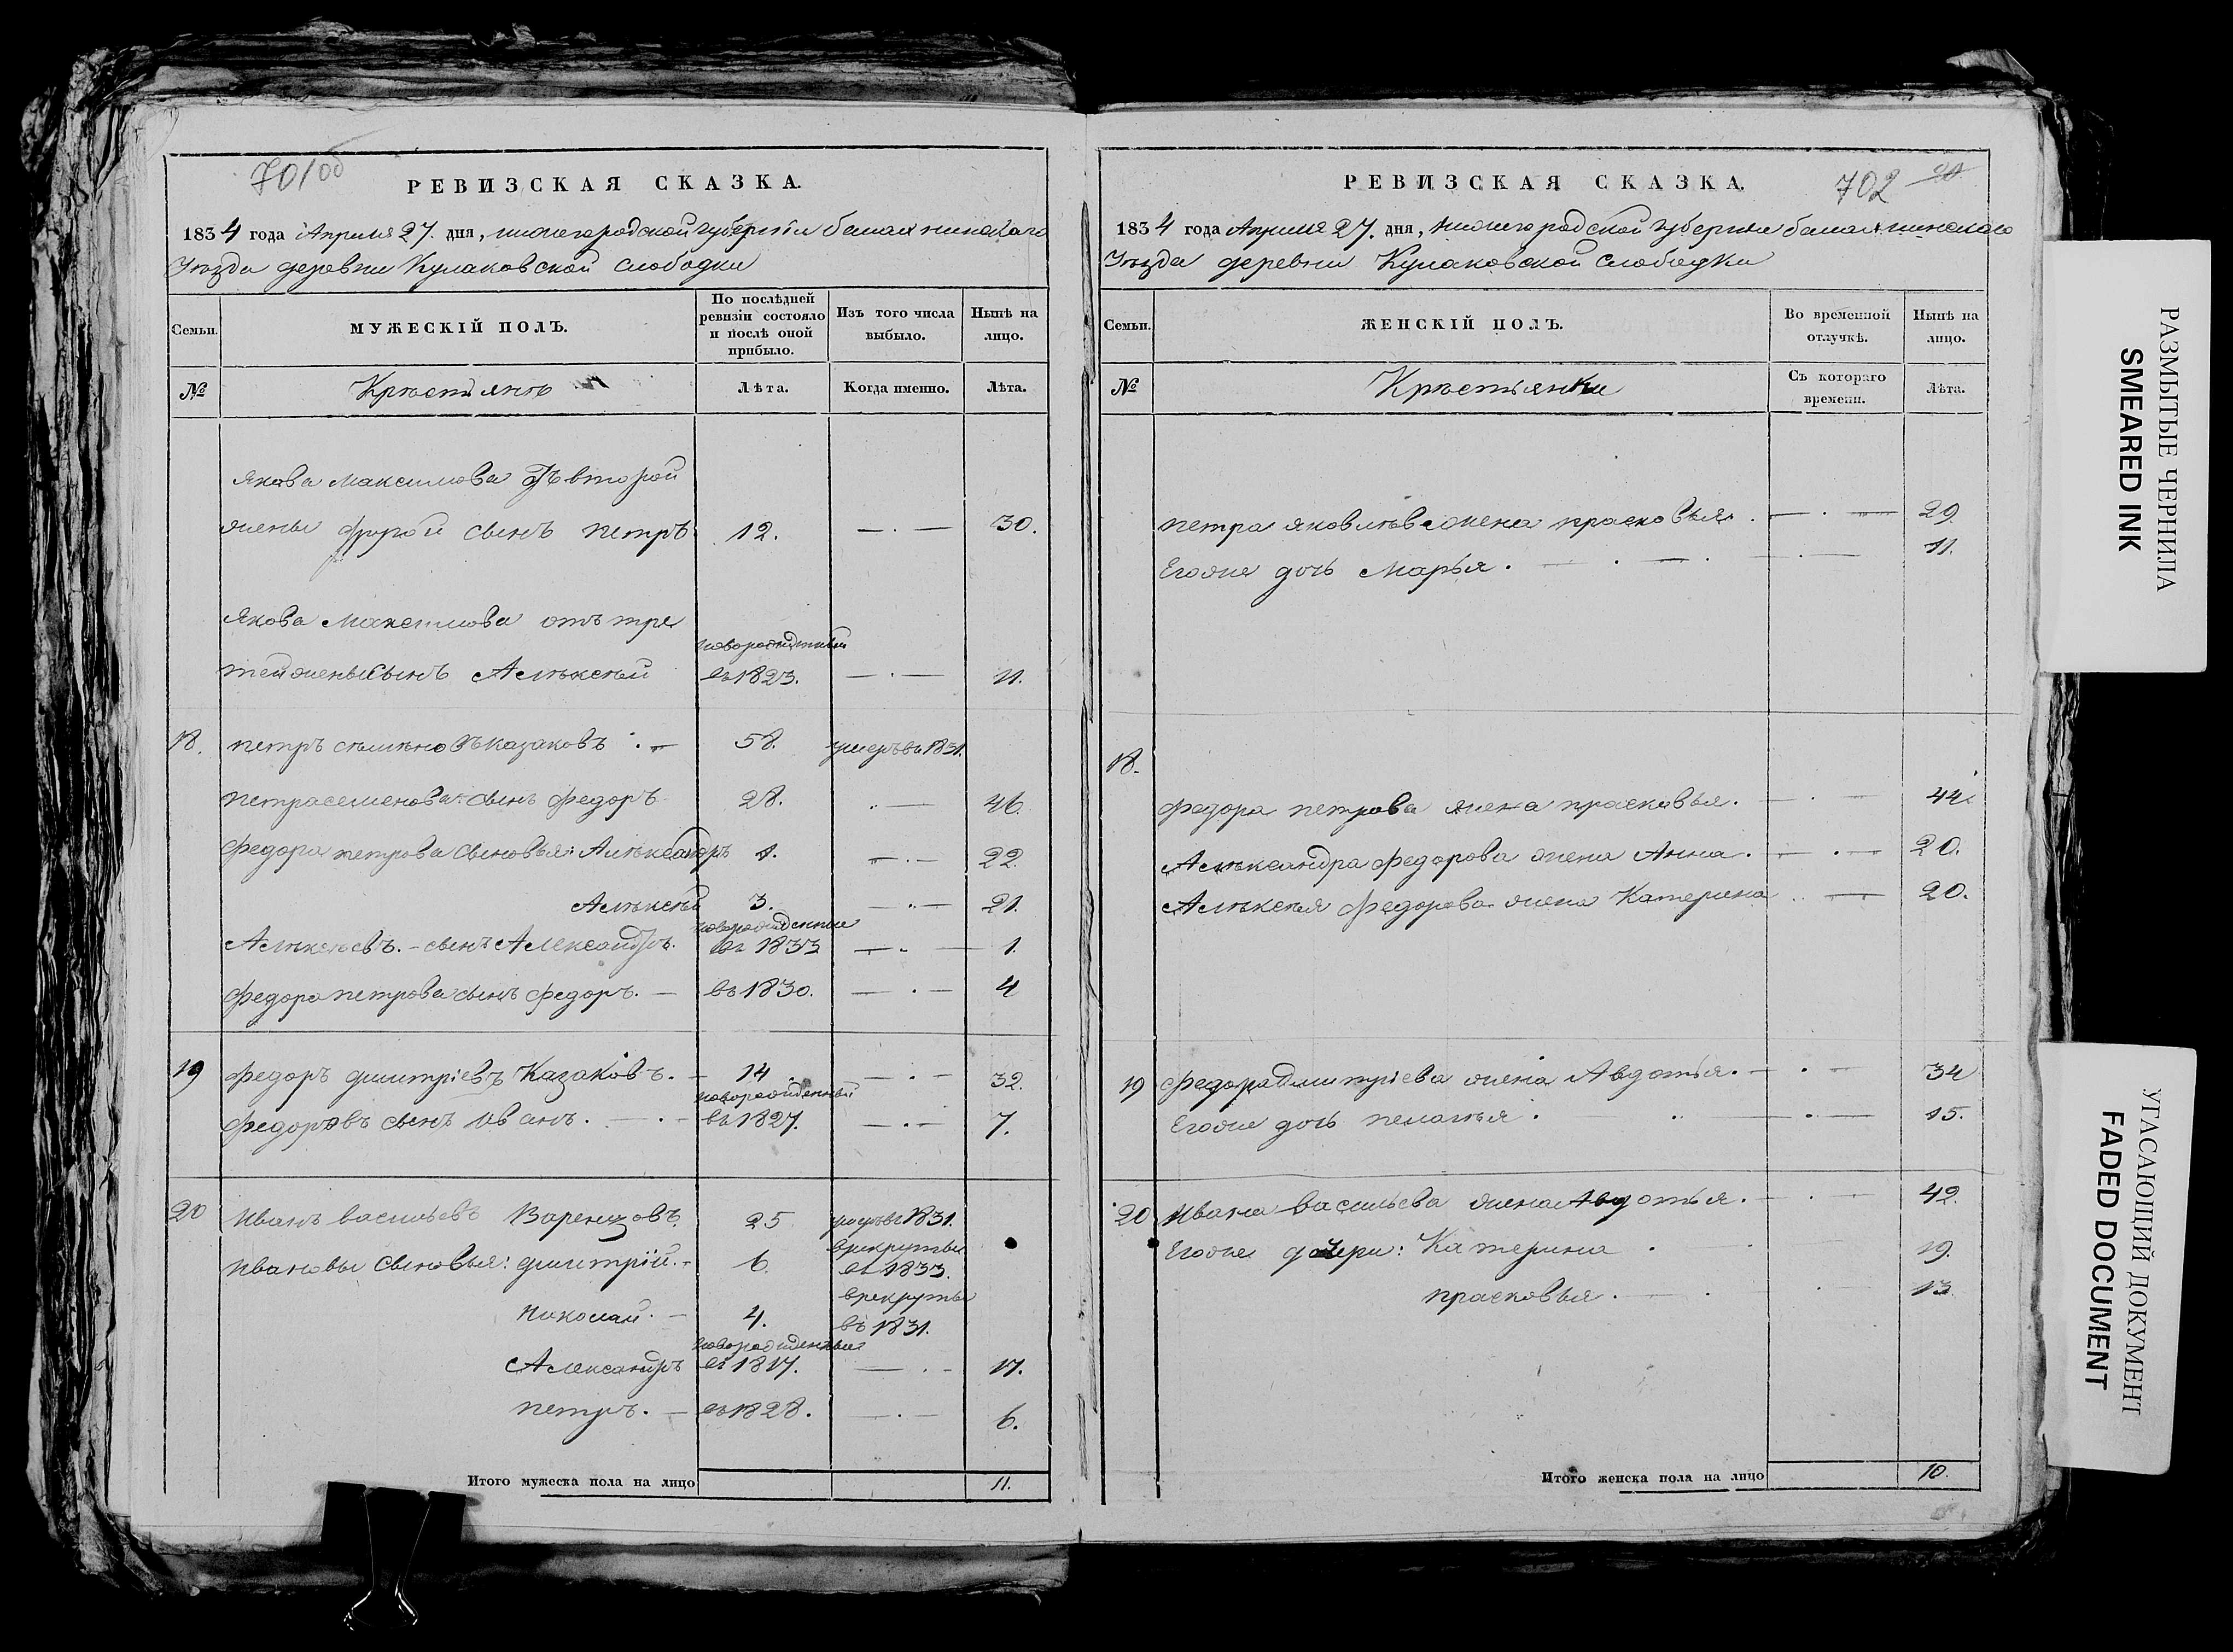 701об
РЕВИЗСКАЯ СКАЗКА.
1834 года Апреля 27. дня, нижегородской губернiи балахнинскаго
Уѣзда деревни Кулаковской слободки
Семьи.
МУЖЕСКІЙ ПОЛЪ.
По послѣдней ревизіи состояло и послѣ оной прибыло.
Изъ того числа выбыло.
Нынѣ на лицо.
№
Крѣстьянъ
Лѣта.
Когда именно.
Лѣта.
Якова Максимова второй
жены другой сынъ петръ 12. — . — 30.
Якова Максимова отъ тре
новорожденный
тей жены сынъ Алѣксѣй въ 1823. — . — 11.
18. петръ Казаковъ . — 58. умеръ въ 1831.
петра семенова сынъ федоръ 28. . — 46.
федора петрова сыновья: Алѣксандръ 4. — . — 22.
Алѣксѣй 3. — . — 21.
новорожденные
Алѣксѣевъ. - сынъ Александръ. въ 1833 — . — 1.
федора петрова сынъ федоръ. — въ 1830. — . — 4
19 федоръ дмитрiевъ Казаковъ. — 14 — . — 32.
новорожденный
федоровъ сынъ иванъ. — . - въ 1827. — . — 7.
20 Иванъ васильевъ Варенцовъ. 25 умеръ въ 1831.
врекруты
Ивановы сыновья: дмитрiй. - 6. въ 1833.
врекруты
николай. — 4. въ 1831.
новорожденные
Александръ въ 1817. — . - 17.
петръ. — въ 1828. — . — 6.
Итого мужеска пола на лицо 11.
702
РЕВИЗСКАЯ СКАЗКА.
1834 года Апреля 27. дня, нижегородской губернiи балахнинскаго
Уѣзда деревни Кулаковской слободки
Семьи.
ЖЕНСКІЙ ПОЛЪ.
Во временной отлучкѣ.
Нынѣ на лицо.
№
Крѣстьянки
Съ котораго времени.
Лѣта.
петра яковлѣва жена прасковья. — . — 29.
Егоже дочь Марья. — . — . — 11.
18.
федора петрова жена прасковья. — . — 44.
Алѣксандра федорова жена Анна. — . — 20.
Алѣксѣя федорова жена Катерина . . — 20.
19 федора Дмитрiева жена Авдотья. — . — 34
Егоже дочь пелагѣя . . — . — 15.
20 Ивана васильева жена Авдотья. — . — 42.
Егоже дочери: Катерина . . — 19.
прасковья. — . . — 13.
Итого женска пола на лицо 10.
РАЗМЫТЫЕ ЧЕРНИЛА
SMEARED INK
УГАСАЮЩИЙ ДОКУМЕНТ
FADED DOCUMENT